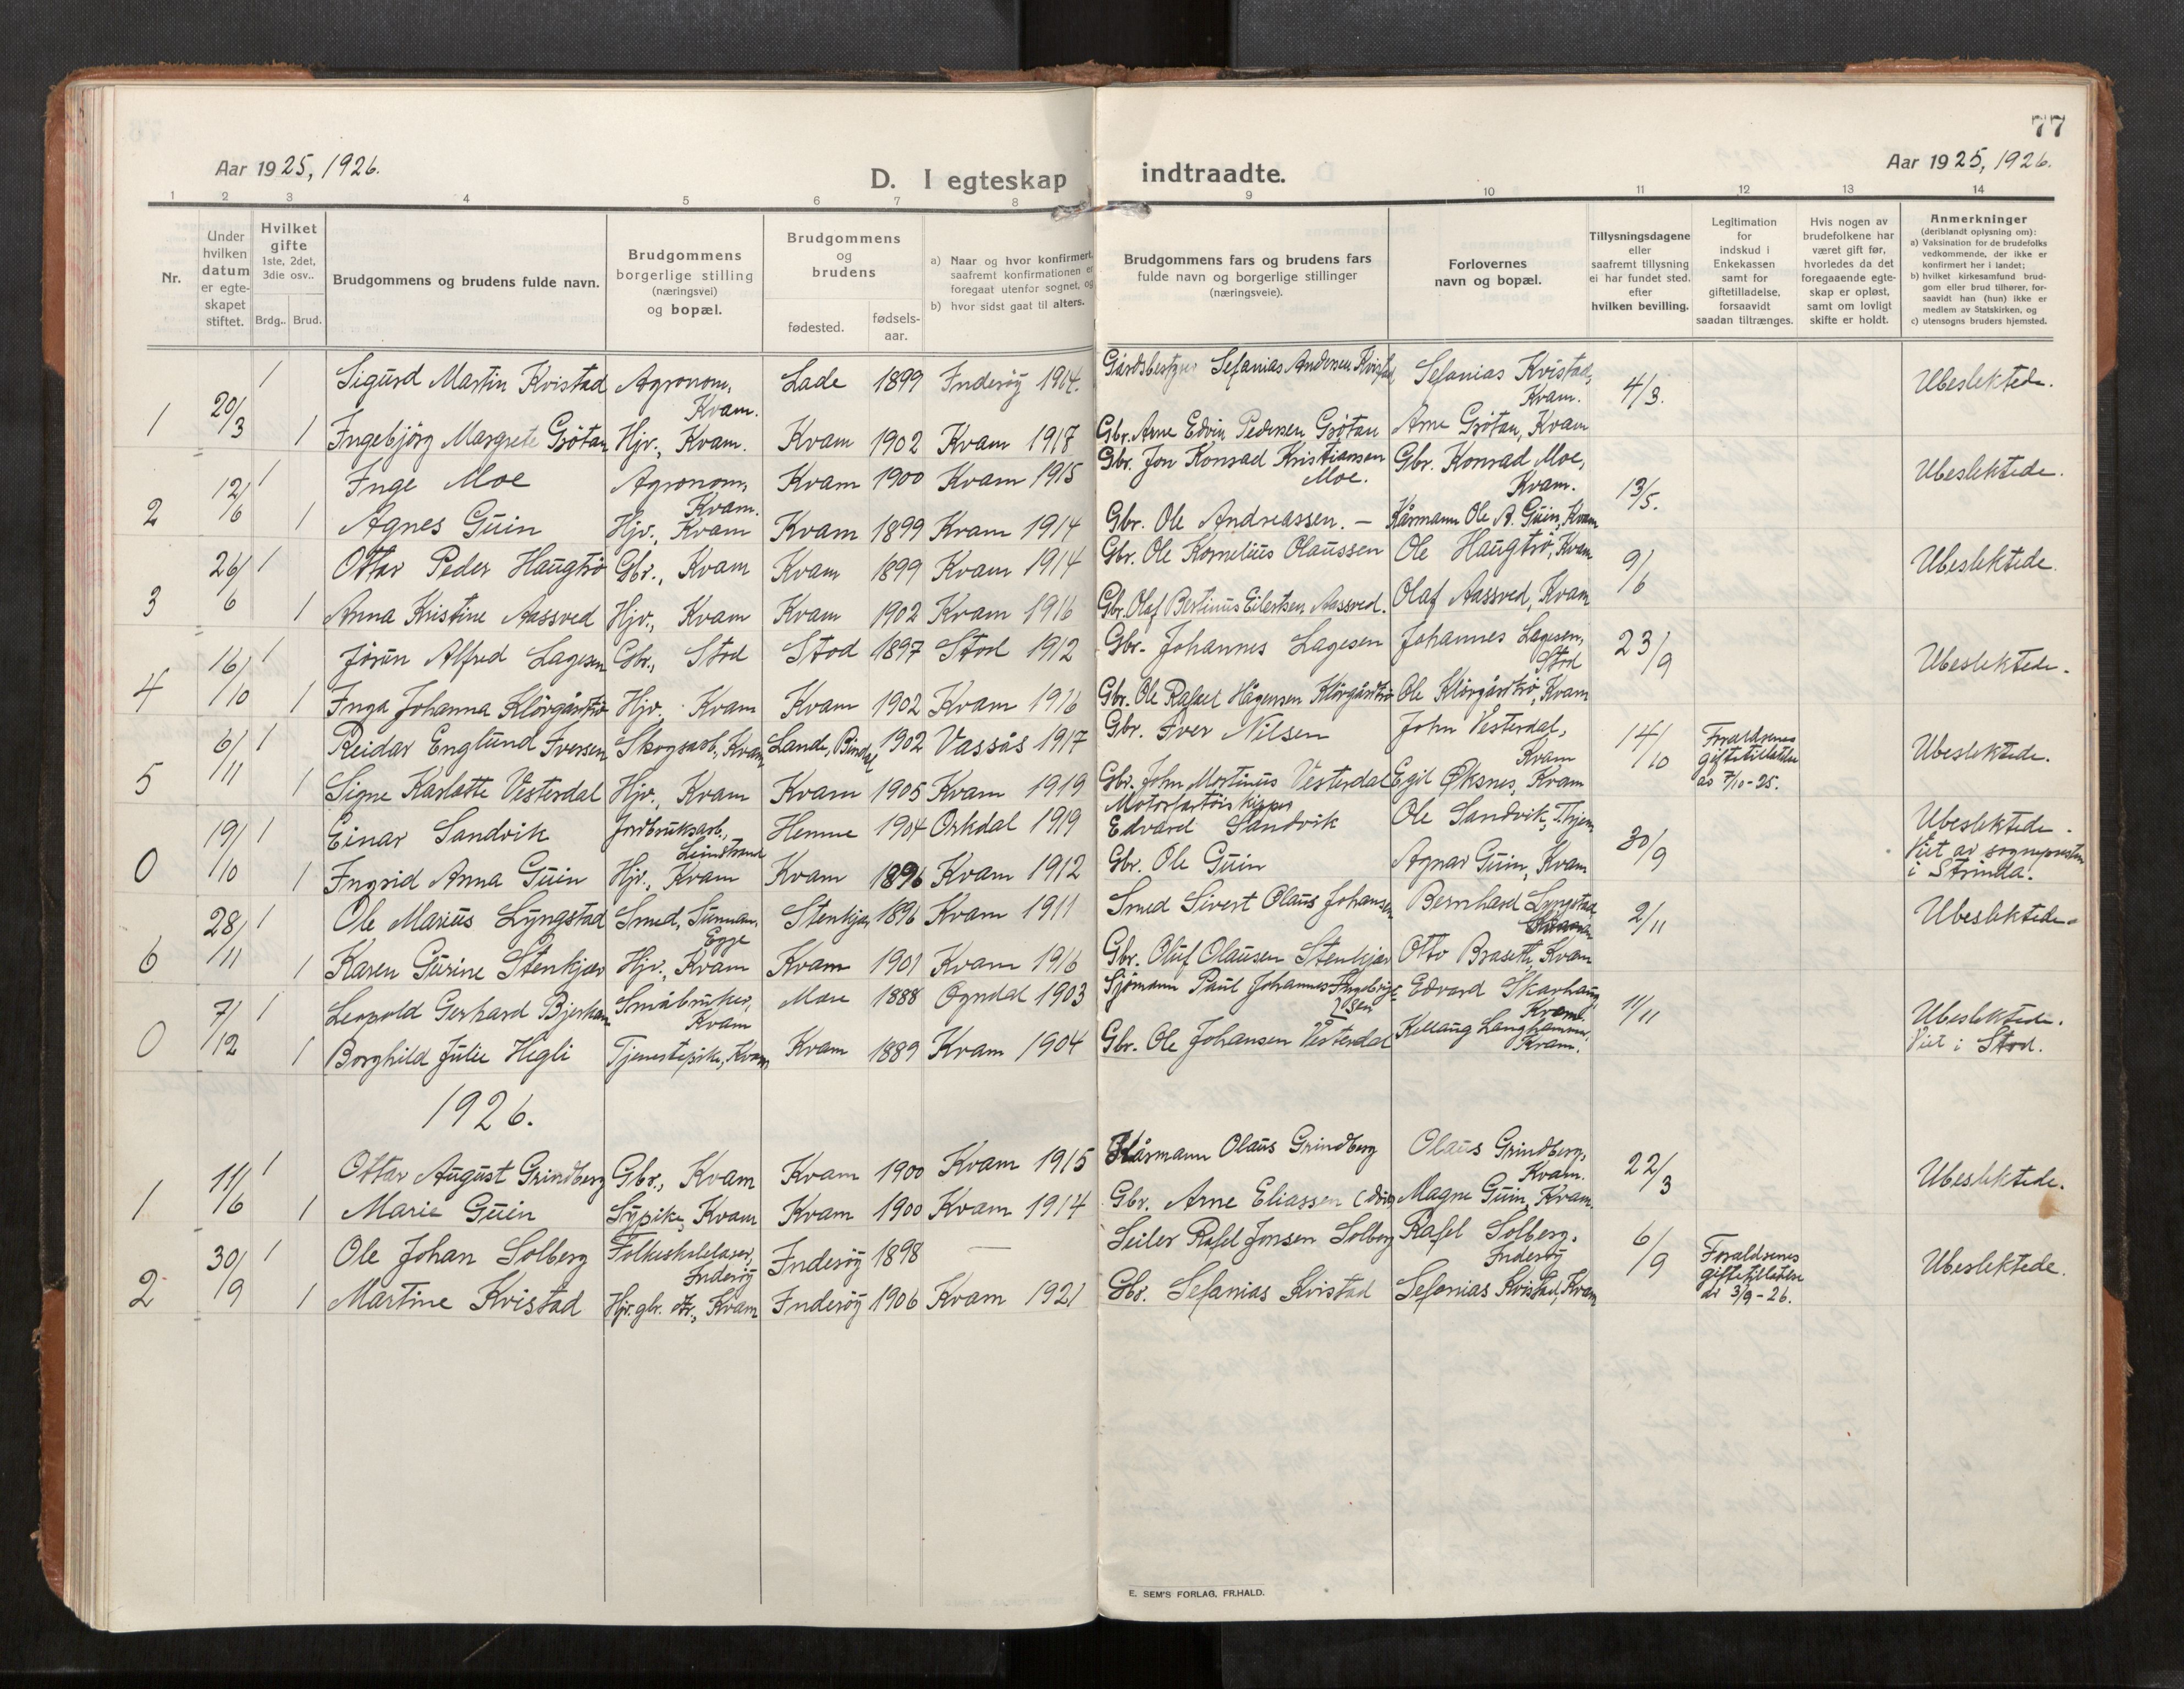 77
Aar 1925, 1926.
D. I egteskap indtraadte.
Aar 1925, 1926.
1 2 3 4 5 6 7 8 9 10 11 12 13 14
Nr.
Under hvilken datum er egteskapet stiftet.
Hvilket gifte 1ste, 2det, 3die osv..
Brdg.. Brud.
Brudgommens og brudens fulde navn.
Brudgommens borgerlige stilling (næringsvei) og bopæl.
Brudgommens og brudens
fødested.
fødsels-aar.
a) Naar og hvor konfirmert, saafremt konfirmationen er foregaat utenfor sognet, og
b) hvor sidst gaat til alters.
Brudgommens fars og brudens fars fulde navn og borgerlige stillinger (næringsveie).
Forlovernes navn og bopæl.
Tillysningsdagene eller saafremt tillysning ei har fundet sted. efter hvilken bevilling.
Legitimation for indskud i Enkekassen samt for giftetilladelse, forsaavidt saadan tiltrænges.
Hvis nogen av brudefolkene har været gift før, hvorledes da det foregaaende egteskap er opløst, samt om lovligt skifte er holdt.
Anmerkninger (deriblandt oplysning om):
a) Vaksination for de brudefolks vedkommende, der ikke er konfirmert her i landet;
b) hvilket kirkesamfund brudgom eller brud tilhører, forsaavidt han (hun) ikke er medlem av Statskirken, og
c) utensogns bruders hjemsted.
1 20/3 1 Sigurd Martin Kvistad Agronom, Kvam. Lade 1899 Inderøy 1914. Gårdsbestyrer Sefanias Andersen Kvistad Sefanias Kvistad, Kvam. 4/3. Ubeslektede.
1 Ingebjörg Margrete Grötan Hjv., Kvam. Kvam 1902 Kvam 1917 Gbr. Arne Edvin Pedersen Grötan Arne Grötan, Kvam
2 12/6 1 Inge Moe Agronom, Kvam. Kvam 1900 Kvam 1915 Gbr. Jon Konrad Kristiansen Moe. Gbr. Konrad Moe, Kvam. 13/5. Ubeslektede.
1 Agnes Guin Hjv., Kvam Kvam 1899 Kvam 1914 Gbr. Ole Andreassen. — Kårmann Ole A. Guin, Kvam
3 26/6 1 Ottar Peder Haugtrö Gbr., Kvam Kvam 1899 Kvam 1914 Gbr. Ole Kornelius Olaussen Ole Haugtrö, Kvam 9/6 Ubeslektede.
1 Anna Kristine Aassved Hjv., Kvam Kvam 1902 Kvam 1916 Gbr. Olaf Bertinus Eilertsen Aassved. Olaf Aassved, Kvam
4 16/10 1 Jörun Alfred Lagesen Gbr., Stod Stod 1897 Stod 1912 Gbr. Johannes Lagesen Johannes Lagesen, Stod 23/9 Ubeslektede.
1 Inga Johanna Klörgårdtrö Hjv., Kvam Kvam 1902 Kvam 1916 Gbr. Ole Rafael Hågensen Klörgårdtrö Ole Klörgårdtrö, Kvam
5 6/11 1 Reidar Englund Iversen Skogsarb., Kvam Lande, Bindal 1902 Vassås 1917 Gbr. Iver Nilsen John Vesterdal, Kvam 14/10 Foraldrenes giftetillatelse av 7/10-25. Ubeslektede.
1 Signe Karlotte Vesterdal Hjv., Kvam Kvam 1905 Kvam 1919 Gbr. John Martinus Vesterdal Egil Øksnes, Kvam
0 19/10 1 Einar Sandvik Jordbruksarb., Leinstrand Hemne 1904 Orkdal 1919 Motorfartöiskipper Edvard Sandvik Ole Sandvik, 30/9 Ubeslektede. Viet av sogneprsten i Strinda.
1 Ingrid Anna Guin Hjv., Kvam Kvam 1896 Kvam 1912 Gbr. Ole Guin Agnar Guin, Kvam
6 28/11 1 Ole Marius Lyngstad Smed, Sunnan, Egge Stenkjær 1896 Kvam 1911 Smed Sivert Olaus Johansen Bernhard Lyngstad 2/11 Ubeslektede.
1 Karen Gurine Stenkjær Hjv., Kvam Kvam 1901 Kvam 1916 Gbr. Oluf Olausen Stenkjær Otto Braseth, Kvam
0 7/12 1 Leopold Gerhard Bjerkan Småbruker, Kvam Mære 1888 Ogndal 1903 Sjömann Paul Johannes Ingebrigtsen Edvard Skarhaug Kvam. 11/11 Ubeslektede. Viet i Stod.
1 Borghild Julie Hegli Tjenestepike, Kvam Kvam 1889 Kvam 1904 Gbr. Ole Johansen Vesterdal Kellaug Langhammer, Kvam.
1926.
1 11/6 1 Ottar August Grindberg Gbr., Kvam Kvam 1900 Kvam 1915 Kårmann Olaus Grindberg Olaus Grindberg, Kvam. 22/3 Ubeslektede.
1 Marie Guin Sypike, Kvam Kvam 1900 Kvam 1914 Gbr. Arne Eliassen (död) Magne Guin, Kvam.
2 30/9 1 Ole Johan Solberg Folkeskolelærer, Inderöy Inderöy 1898 — Seiler Rafel Jonsen Solberg Rafel Solberg, Inderöy 6/9 Foraldrenes giftetillatelse av 3/9-26. Ubeslektede.
1 Martine Kvistad Hjv. gbr. dtr., Kvam Inderöy 1906 Kvam 1921 Gbr. Sefanias Kvistad Sefanias Kvistad, Kvam
E. SEM'S FORLAG, FR.HALD.